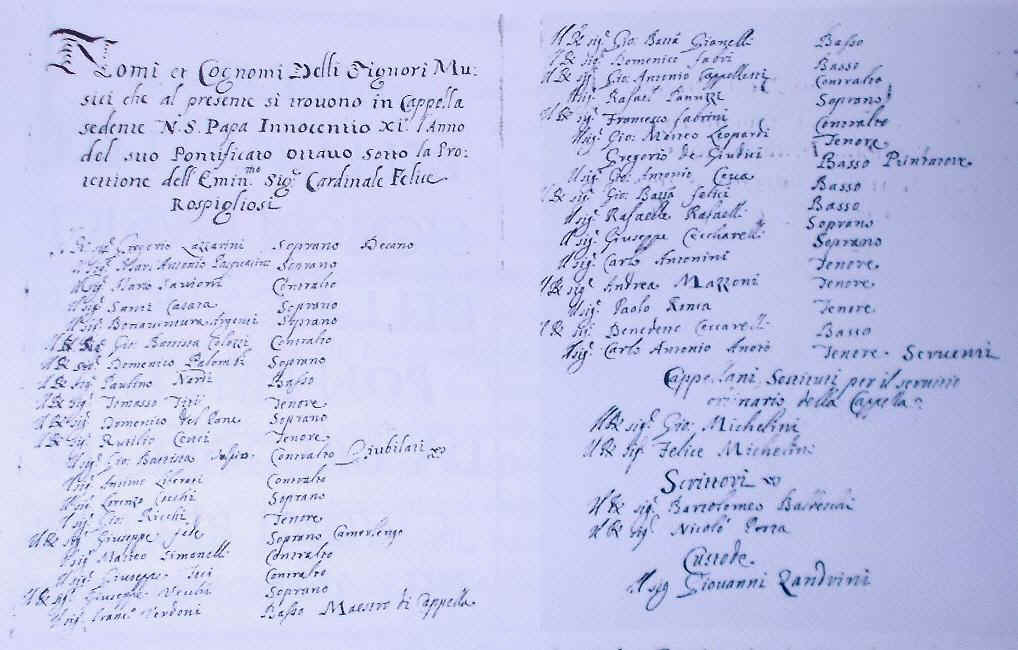 Nomi et Cognomi Delli Signori Mu:
sici che al presente si trovono in Cappella
sedente N. S. Papa Innocentio XI. l'Anno
del suo Pontificato Ottavo Sotto la Pro:
tettione dell' Emin.mo Sig.r Cardinale Felice
Rospigliosi
Il R. sig.r Gregorio Lazzarini Soprano Decano
Il sig.r Marc Antonio Pasqualini Soprano
Il sig.r Mario Savioni Contralto
Il sig.r Santi Casata Soprano
Il sig.r Bonaventura Argenti Soprano
Il R. sig.r Gio: Battista Contralto
Il R. sig.r Domenico Palombi Soprano
Il R. sig.r Paulino Nerli Basso
Il R. sig.r Tomasso Tenore
Il R. sig.r Domenico del Pane Soprano
Il R. sig.r Rutilio Cenci Tenore
Il sig.r Gio: Battista Contralto Giubilati
Il sig.r Antimo Liberati Contralto
Il sig.r Lorenzo Cecchi Soprano
Il sig.r Gio: Ricchi Tenore
Il R. sig.r Giuseppe Fede Soprano Camerlengo
Il sig.r Matteo Simonelli Contralto
Il sig.r Giuseppe Contralto
Il R. sig.r Giuseppe Vecchi Soprano
Il sig.r Franc.o Verdoni Basso Maestro di Cappella
Il R. sig.r Gio: Batta Gianelli Basso
Il R. sig.r Domenico Fabri Basso
Il R. sig.r Gio: Antonio Cappelletti Contralto
Il sig.r Rafael Panuzzi Soprano
Il R. sig.r Francesco Fabrini Contralto
Il sig.r Gio: Matteo Leopardi Tenore
Gregorio de Giudici Basso Puntatore
Il sig.r Gio: Antonio Basso
Il R. sig.r Gio: Batta Felici Basso
Il sig.r Rafaelle Rafaelli Soprano
Il sig.r Giuseppe Ceccharelli Soprano
Il sig.r Carlo Antonini Tenore
Il R. sig.r Andrea Mazzoni Tenore
Il sig.r Paolo Ronca Tenore
Il R. sig.r Benedetto Ceccarelli Basso
Il sig.r Carlo Antonio Tenore. Serventi
Cappellani, Sostituti per il servitio
ordinario della Cappella
Il R. sig.r Gio: Michelini
Il R. sig.r Felice Michelini
Scrittori
Il R. sig.r Bartolomeo
Il R. sig.r Nicolò
Custode
Il sig.r Giovanni Landrini